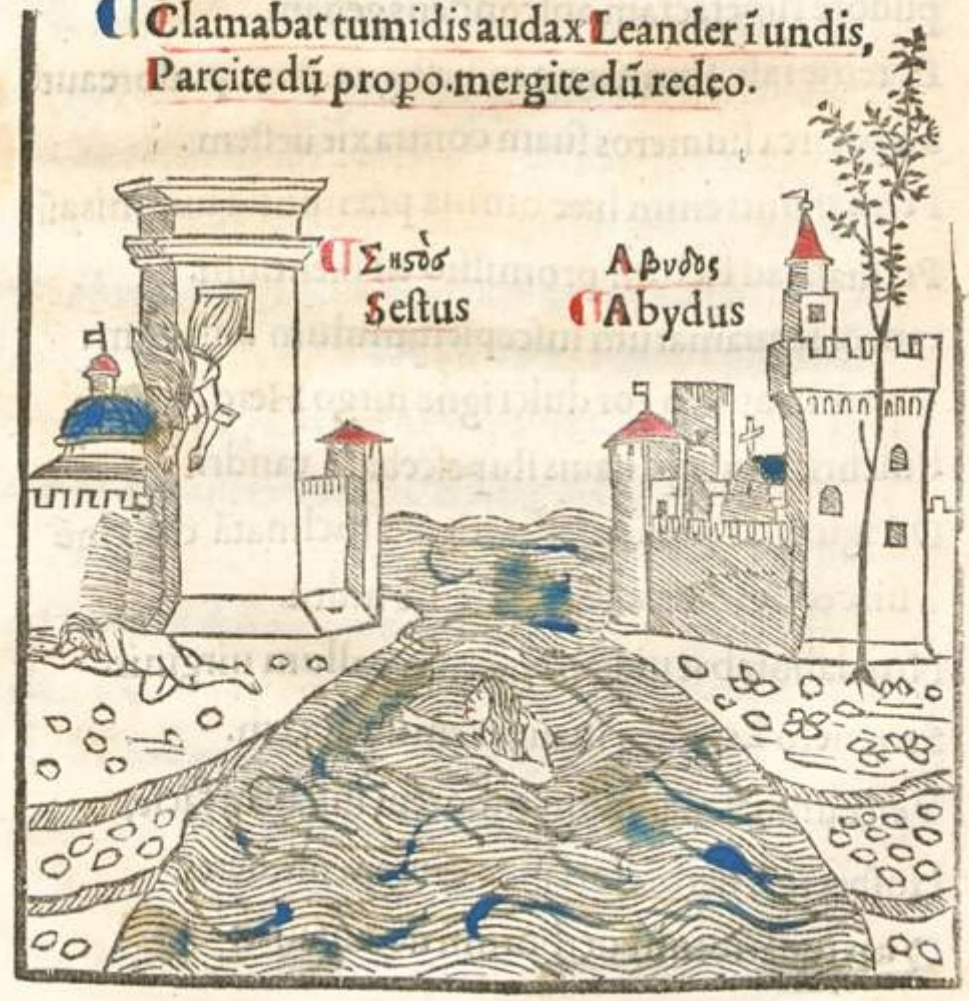 Clamabat tumidis audax Leander ī undis,
Parcite dū propo. mergite dū redeo.
Σηστὸσ
Αβυδος
Sestus
Abydus